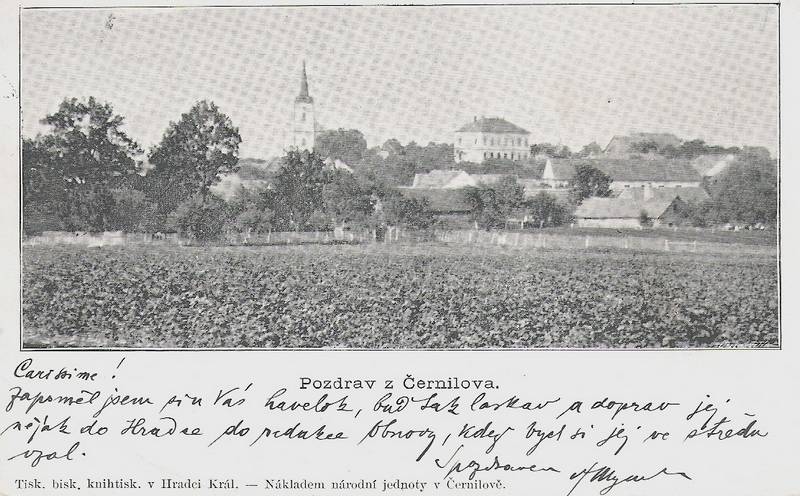 Carissime!
Pozdrav z Černilova.
Zapomněl jsem si u Vás havelok, buď tak laskav a doprav jej
nějak do Hradce do redakce Obnovy, kdež bych si jej ve středu
vzal.
S pozdravem
Tisk. bisk. knihtisk. v Hradci Král. — Nákladem národní jednoty v Černilově.